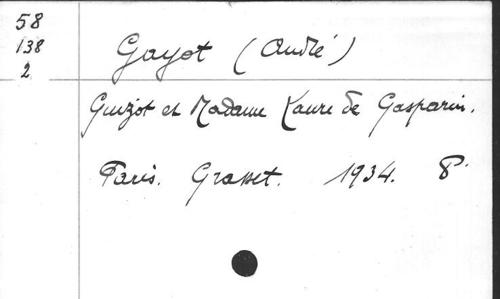 58
138
2
Gayot (André)
Guizot et Madame Laure de Gasparin.
Paris. Grasset. 1934. 8°.